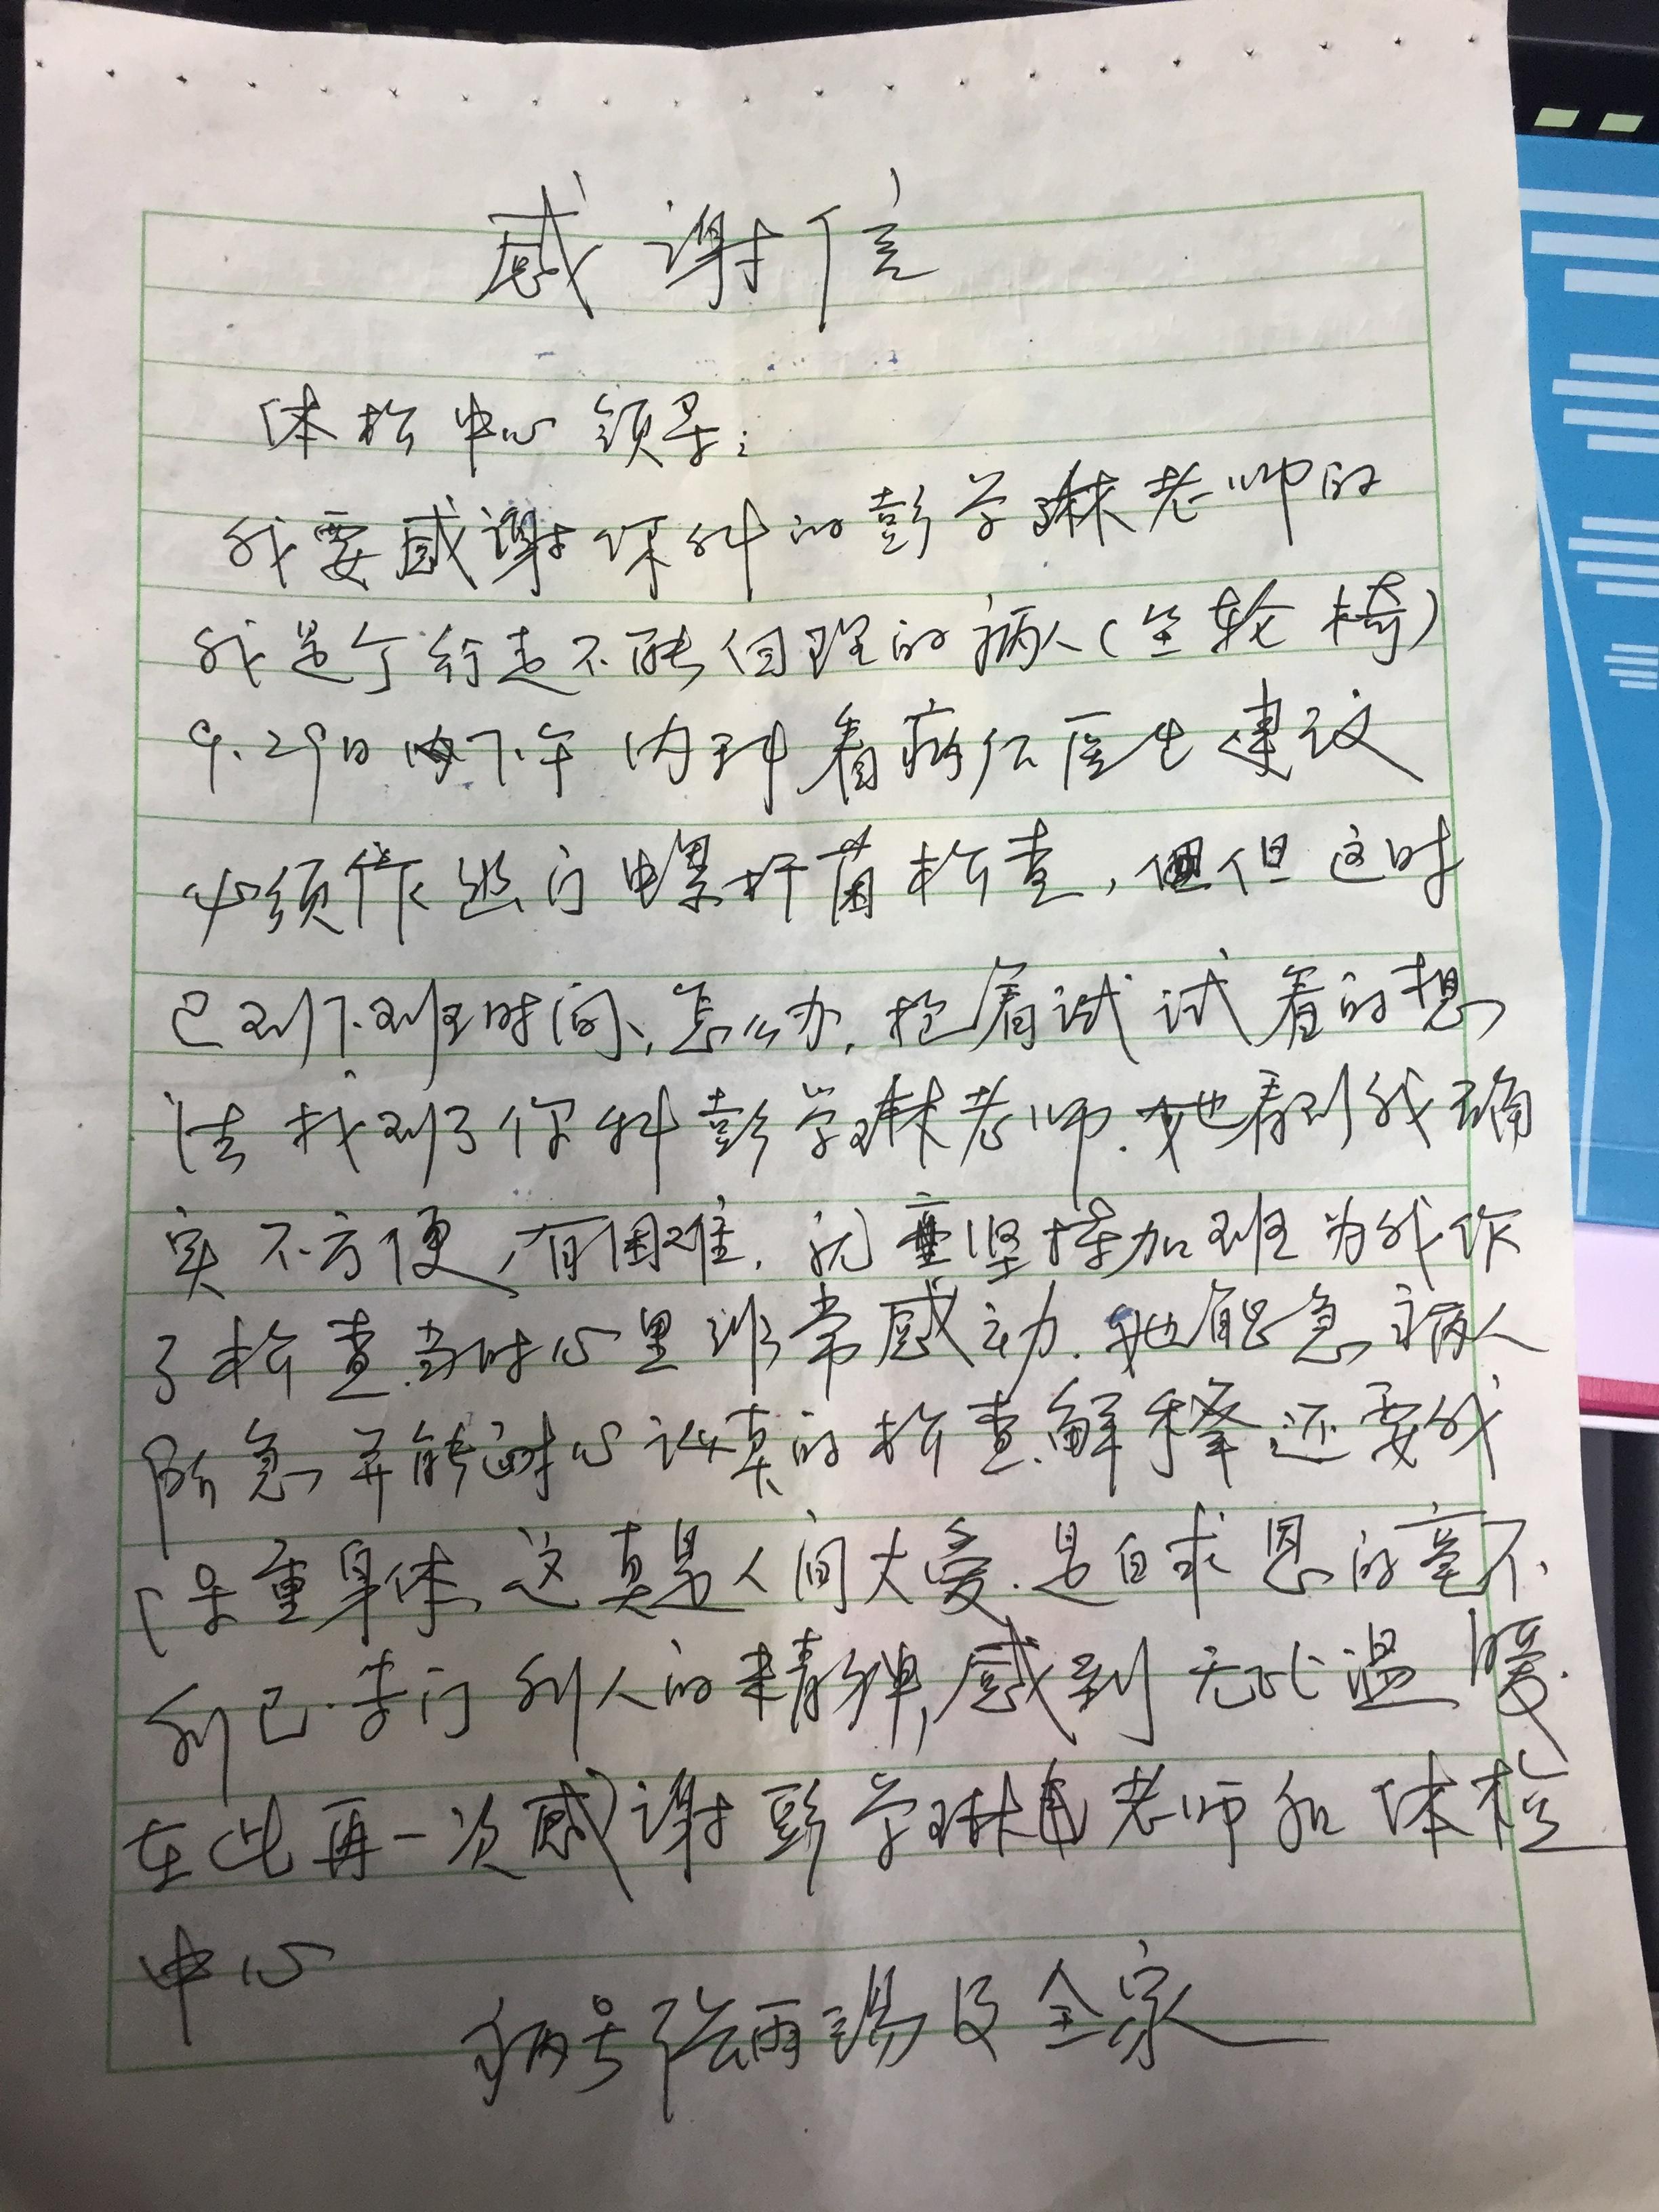 感谢信
体检中心领导：
我要感谢你科的彭学琳老师的
我是个行走不能自理的病人（坐轮椅）
9.29日下午内科看病后医生建议
必须作幽门螺杆菌检查，但这时
已到下班时间、怎么办，抱着试试看的想
法找到了你科彭学琳老师.她看到我确
实不方便，有困难.就坚持加班为我作
了检查.当时心里非常感动.她能急病人
所急并能耐心认真的检查.解释还要我
保重身体、这真是人间大爱.是白求恩的毫不
利己.专门利人的精神，感到无比温暖.
在此再一次感谢彭学琳老师和体检
中心
病号张雨及全家